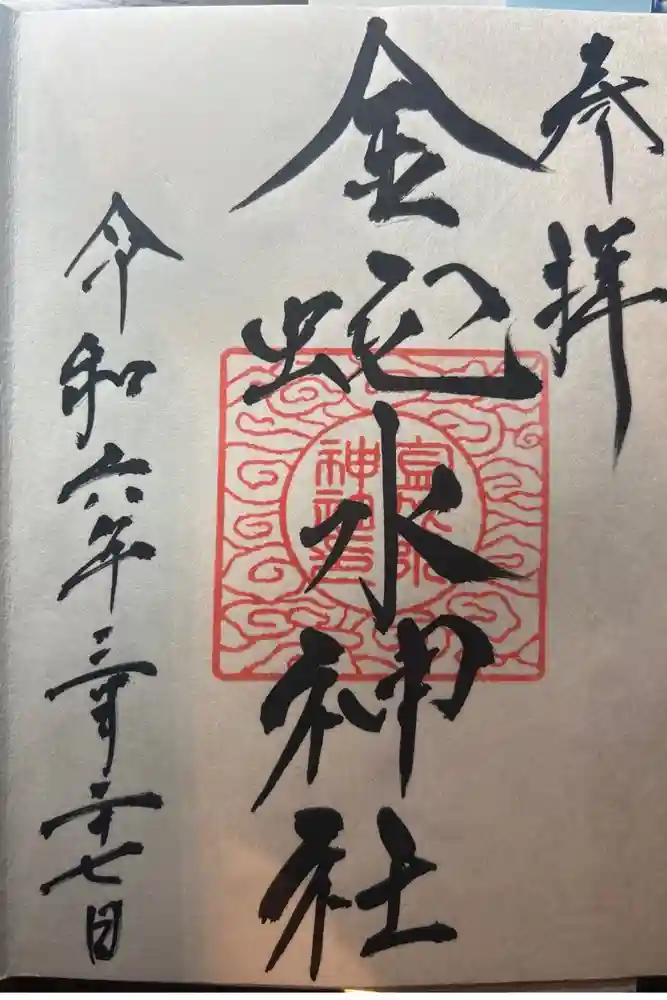 参拝
金蛇水神社
令和六年三月二十七日